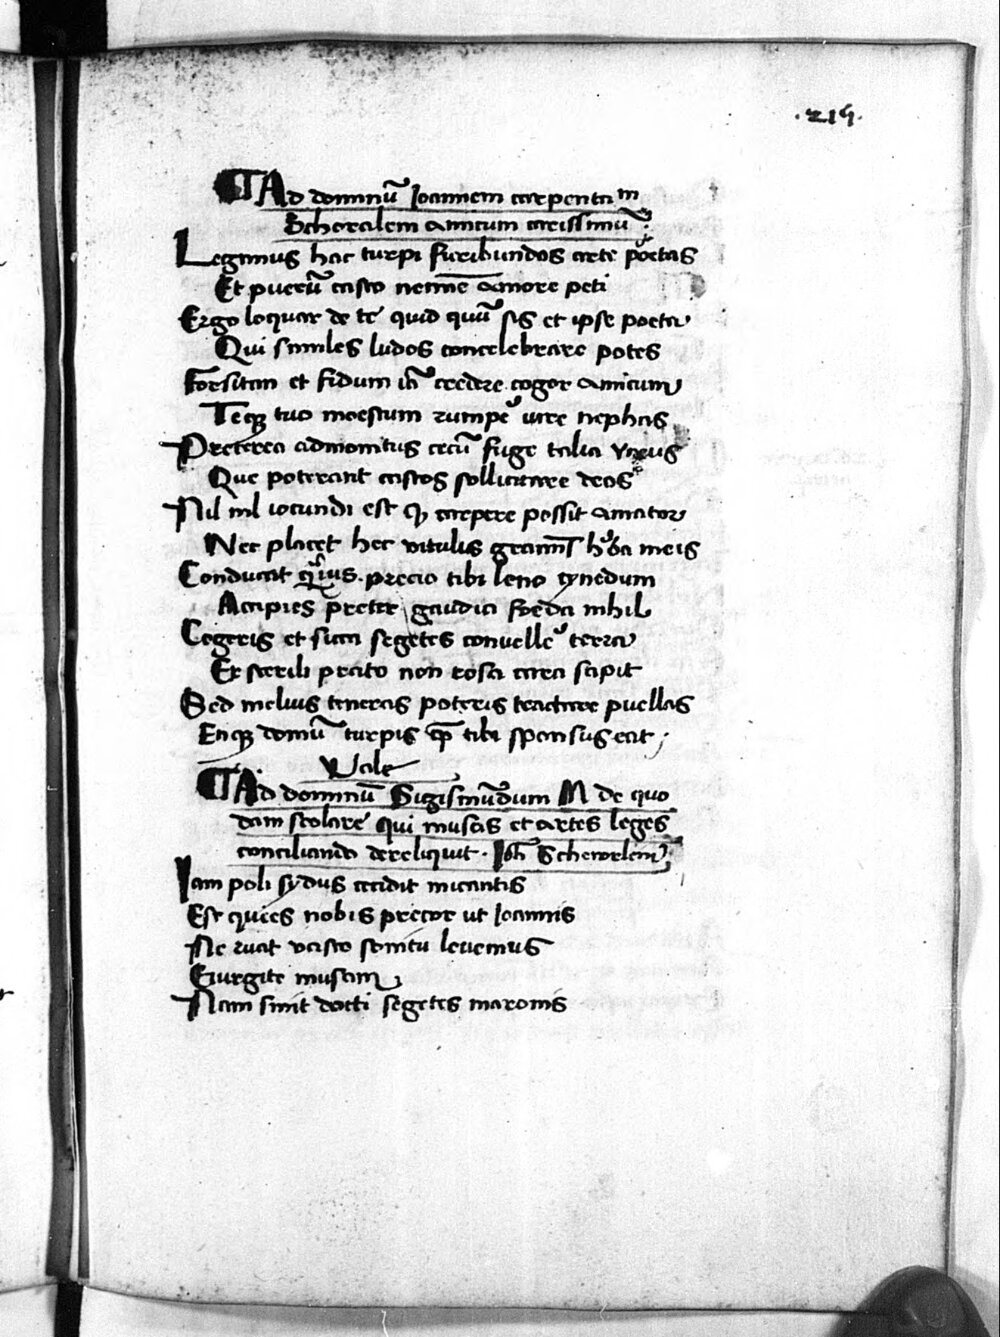 .215.
Ad dominū Ioannem carpentam
Scheralem amicum carissimū:
Legimus hac turpi furibundos arte poetas
Et puerū casto nemine amore peti
Ergo loquar de te quid quū sis et ipse poeta
Qui similes ludos concelebrare potes
Forsitan et fidum credere cogor amicum
Teq tuo moestum rumpe iure nephas
Preterea admonitus fuge talia
Que poterant castos sollicitare deos
Nil iocundi est carpere possit amator
Nec placet hec vitulis hba meis
Conducat precio tibi leno cynedum
Accipies preter gaudia foeda nihil
Legeris et sicca segetes convelle terra
Et sterili prato non rosa cara sapit
Sed melius teneras poteris tractare puellas
domū turpis tibi sponsus eat;
Vale
Ad dominū Sigismūdum M de quo
dam scolare qui musas et artes leges
conciliando dereliquit. Ioh Scheralem
Iam poli sydus cecidit micantis
Est quies nobis precor ut Ioannis
Ne ruat vasto sonitu levemus
Gurgite musam
Nam sinit docti segetes maronis